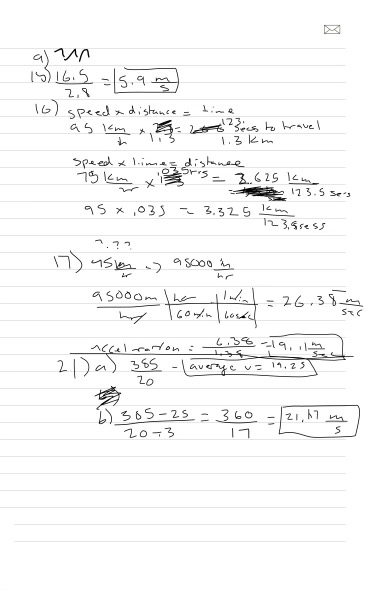 a)
b) 16.5 / 2.8 = 5.9 m/s
16) speed x distance = time
95 km/hr x 1.3 = 123. secs to travel
1.3 km
speed x time = distance
75 km/hr x .035 hrs = 2.625 km / 123.5 secs
95 x .035 = 3.325 km
? . ? ?
17) 95 km/hr -> 95000 m/hr
95000m / hr | hr / 60 min | 1 min / 60 sec = 26.38 m/sec
acceleration = 6.38 / 1.38 = 19.11 m/sec
21) a) 385 / 20 - average v = 19.25
b) 385 - 25 / 20 - 3 = 360 / 17 = 21.17 m/s